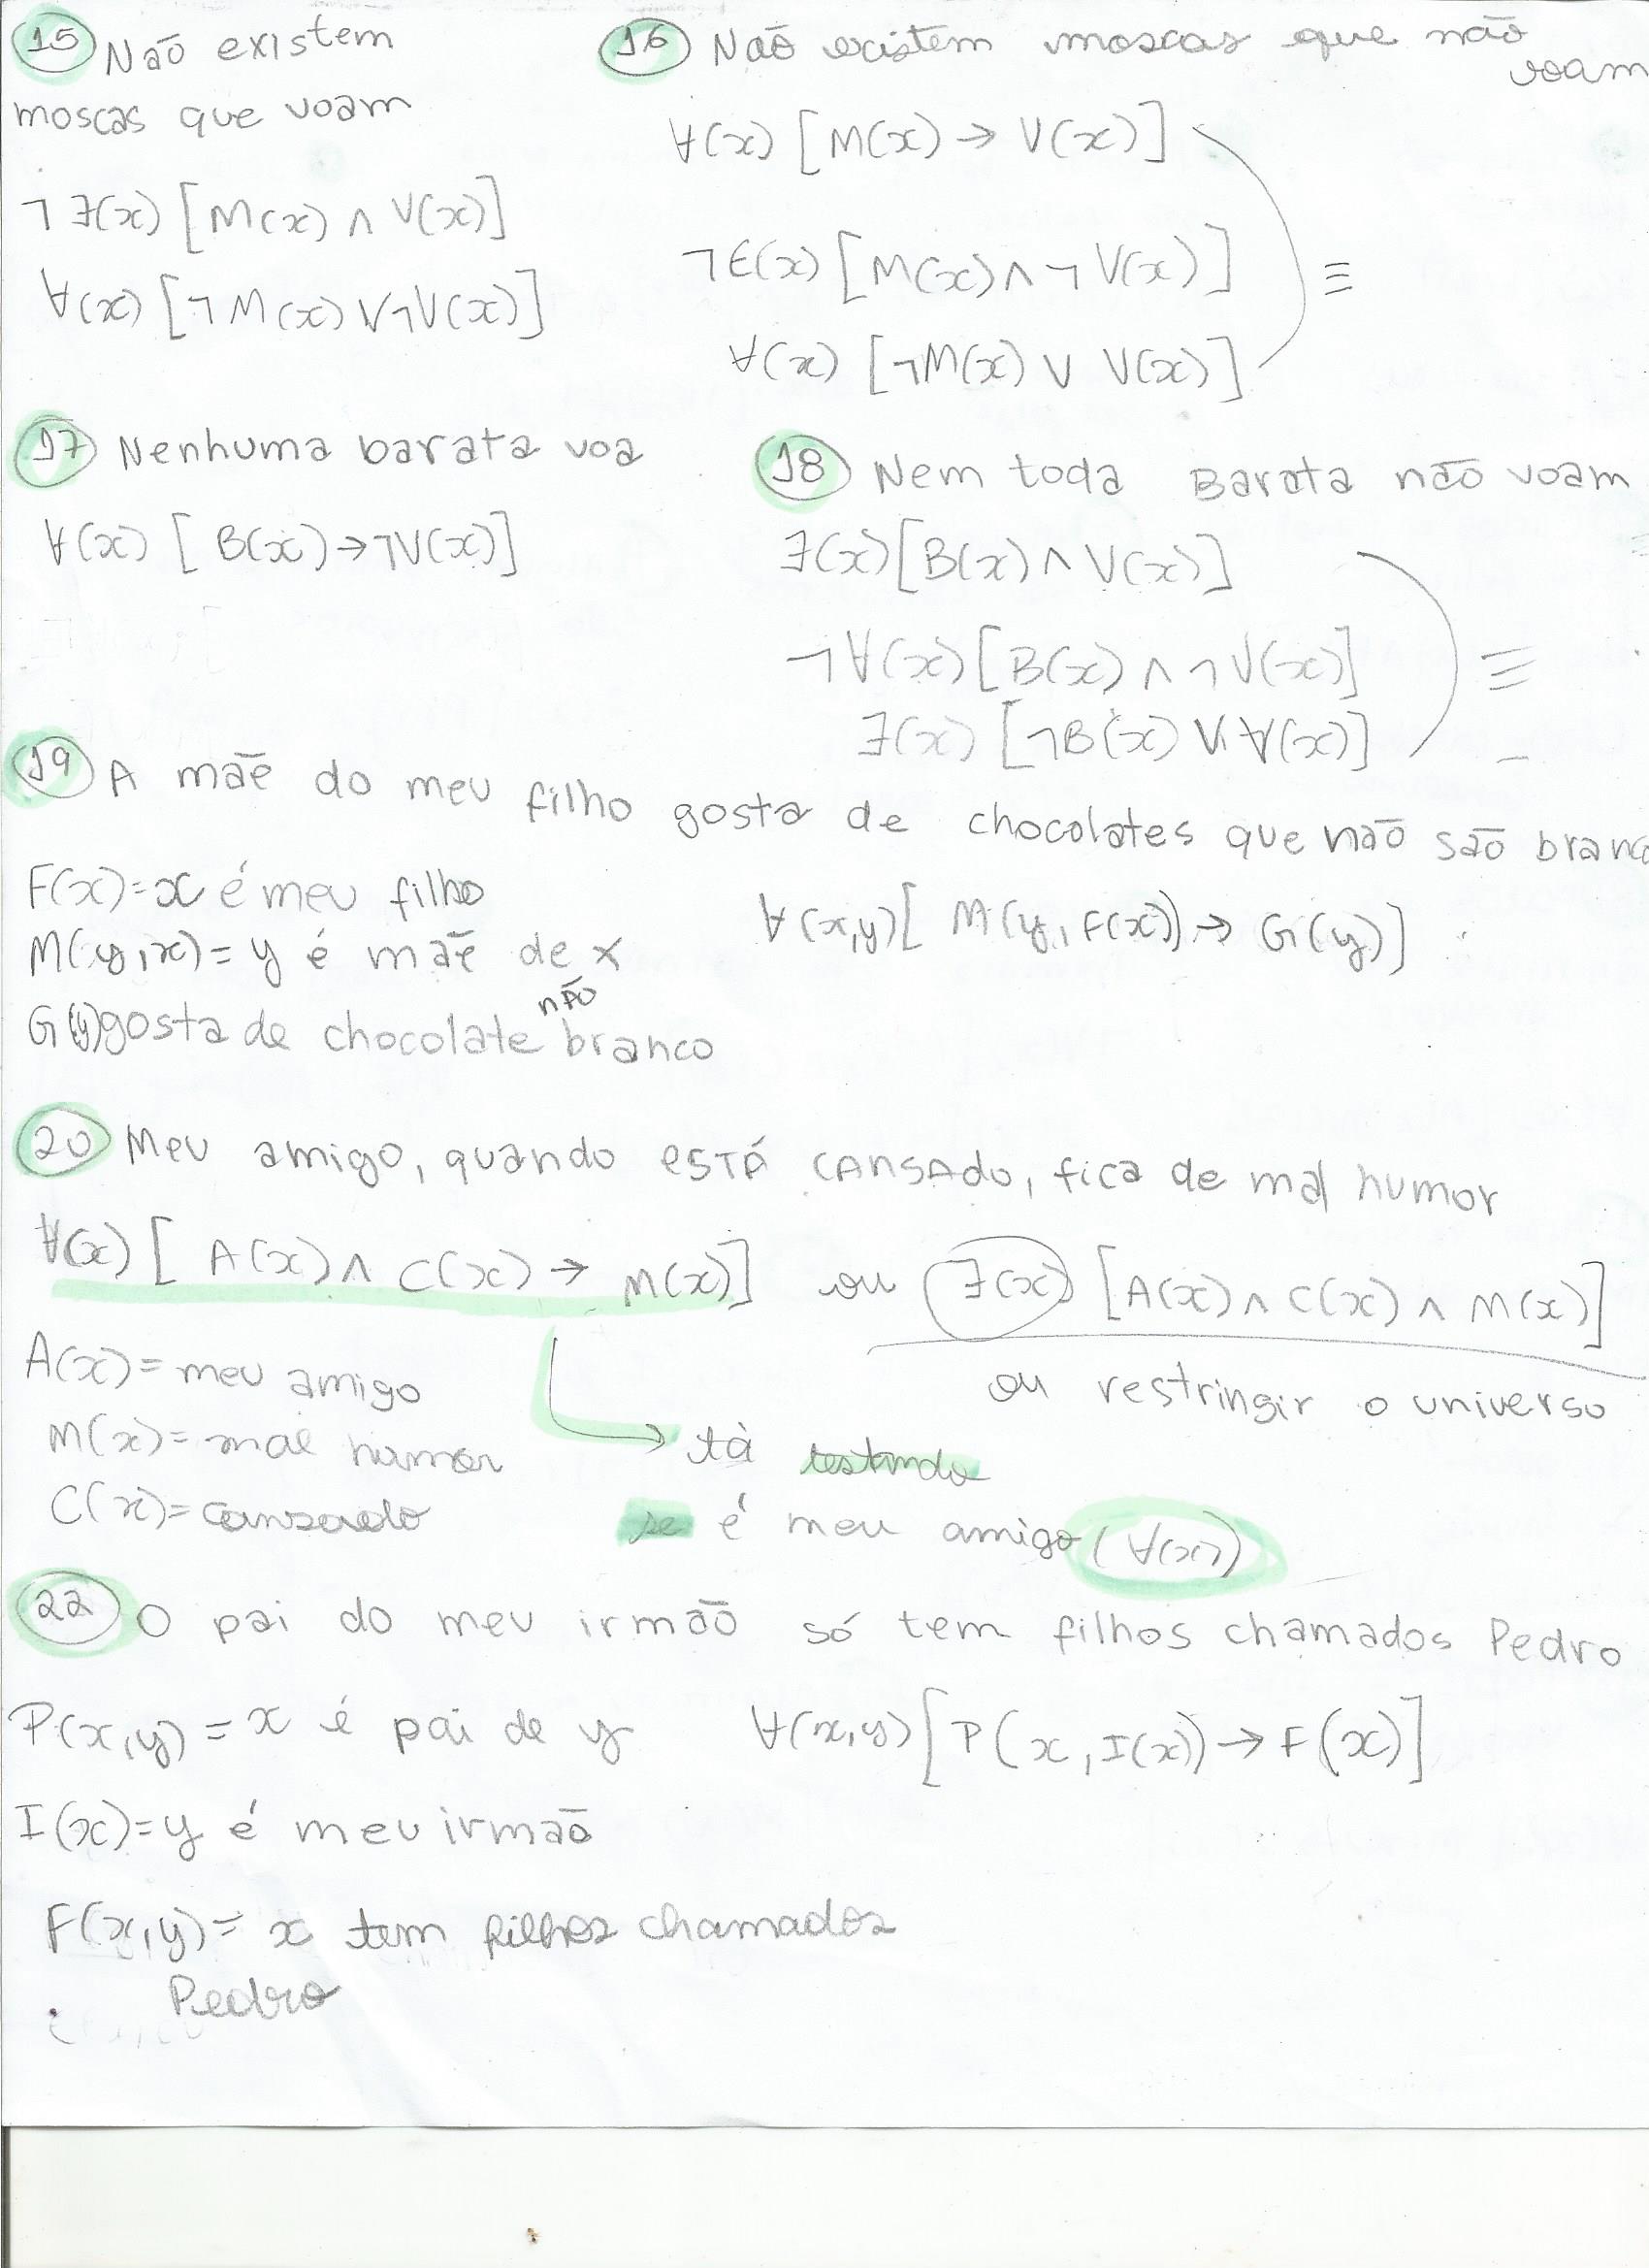 15 Não existem
moscas que voam
¬∃(x) [M(x) ∧ V(x)]
∀(x) [¬M(x) V¬V(x)]
16 Não existem moscas que não
voam
∀(x) [M(x) → V(x)]
¬E(x) [M(x) ∧ ¬V(x)] ≡
∀(x) [¬M(x) V V(x)]
17 Nenhuma barata voa
∀(x) [B(x)→¬V(x)]
18 Nem toda Barata não voam
∃(x)[B(x) ∧ V(x)]
¬∀(x)[B(x) ∧ ¬V(x)] ≡
∃(x) [¬B(x) V ∀(x)]
19 A mãe do meu filho gosta de chocolates que não são branc
F(x)=x é meu filho
M(y,x)= y é mãe de x
não
G(y)gosta de chocolate branco
∀(x,y)[ M(y,F(x)) → G(y)]
20 Meu amigo, quando ESTÁ CANSAdo, fica de mal humor
∀(x) [ A(x) ∧ C(x) → M(x)] ou ∃(x) [A(x) ∧ C(x) ∧ M(x)]
ou restringir o universo
A(x)=meu amigo
M(x)=mal humor
C(x)=cansado
tà testando
se é meu amigo (∀(x))
22 O pai do meu irmão só tem filhos chamados Pedro
P(x,y) = x é pai de y ∀(x,y) [P(x,I(x)) → F(x)]
I(x)=y é meu irmão
F(x,y)= x tem filhos chamados
Pedro